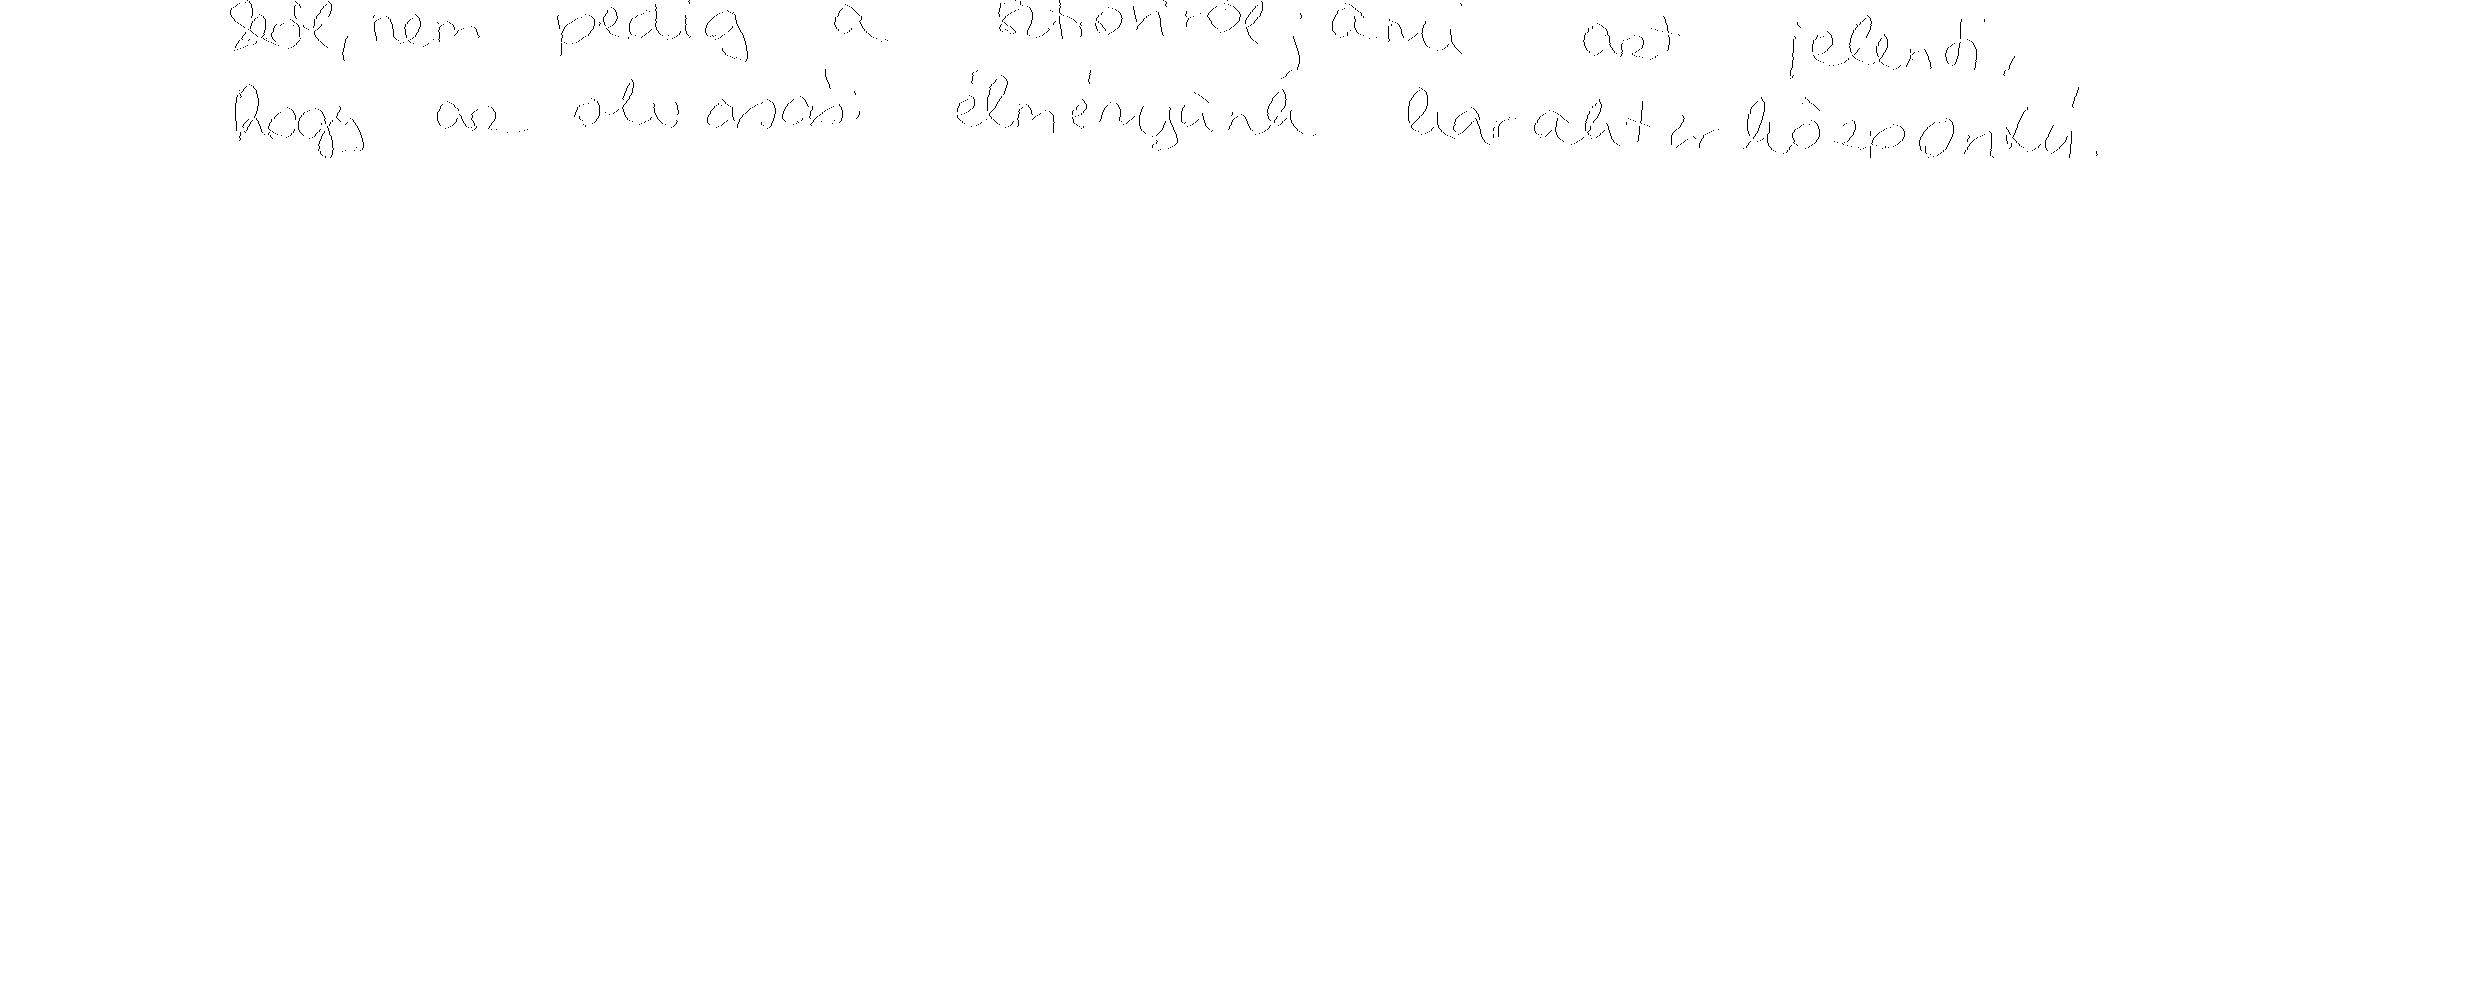 szól, nem pedig a sztoriról; ami azt jelenti,
hogy az olvasási élményünk karakterközpontú.